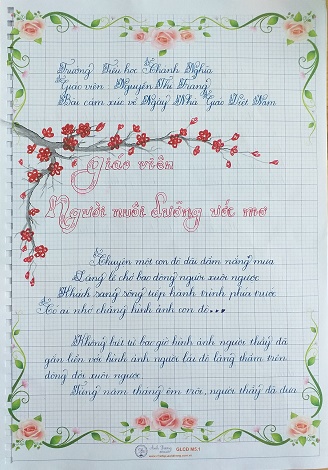 Trường Tiểu học Thanh Nghĩa
Giáo viên: Nguyễn Thị Trang
Bài cảm xúc về Ngày Nhà Giáo Việt Nam
Giáo viên
Người nuôi dưỡng ước mơ
Chuyện một con đò dầu dãm nắng mưa
Lặng lẽ chở bao dòng người xuôi ngược
Khách sang sông tiếp hành trình phía trước
Có ai nhớ chăng hình ảnh con đò...
Không biết từ bao giờ hình ảnh người thầy đã
gắn liền với hình ảnh người lái đò lặng thầm trên
dòng đời xuôi ngược
Từng năm tháng êm trôi, người thầy đã đưa
GLCD MS.1